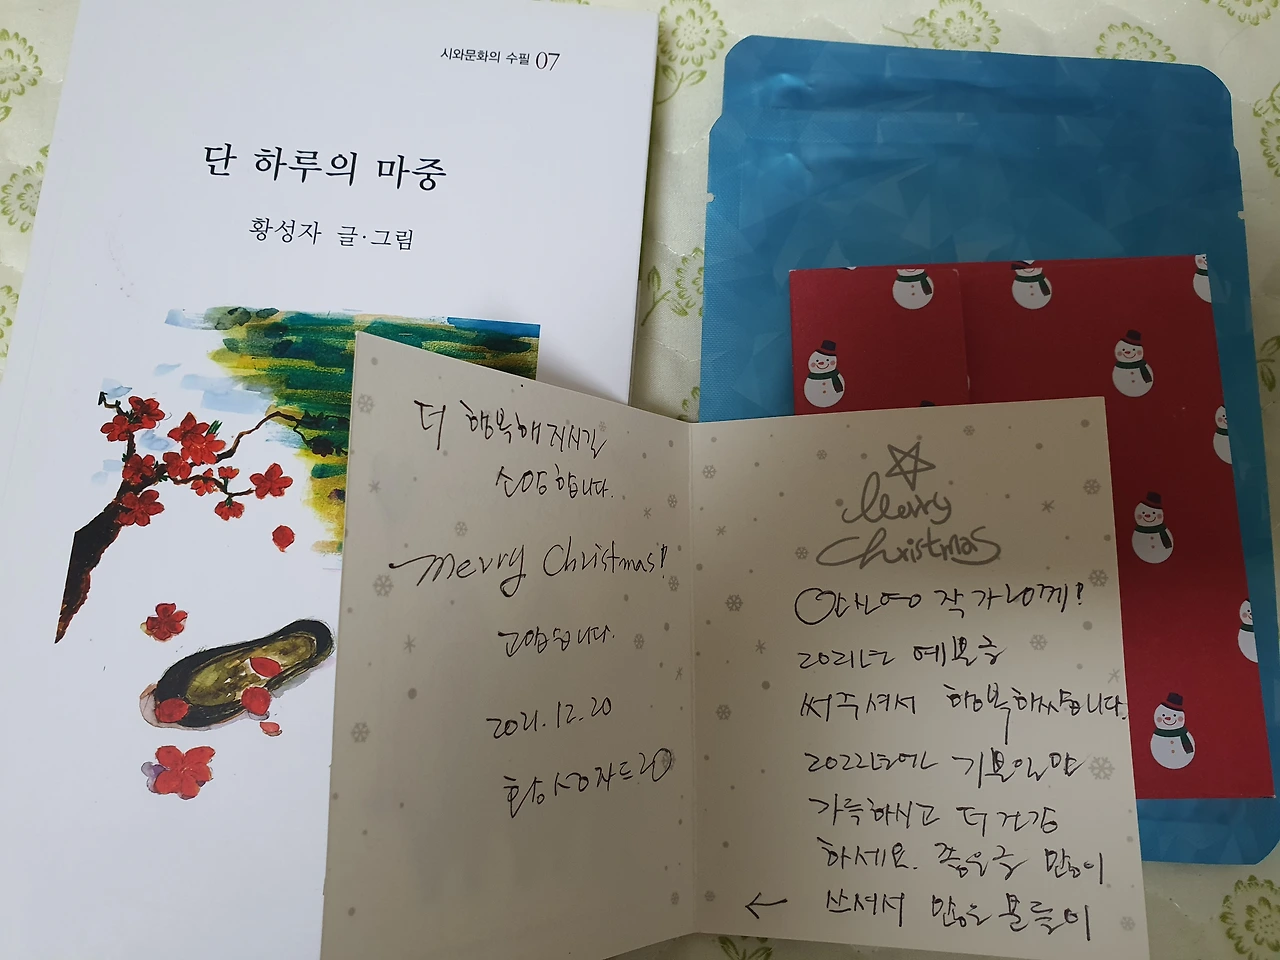 시와문화의 수필 07
단 하루의 마중
황성자 글·그림
더 행복해지시길
소망합니다.
merry Christmas!
고맙습니다.
2021.12.20
황성자드림
Merry
Christmas
안신영 작가님께!
2021년 예쁜글
써주셔서 행복했습니다.
2022년에는 기쁜일만
가득하시고 더 건강
하세요. 좋은글 많이
← 쓰셔서 많은 분들이